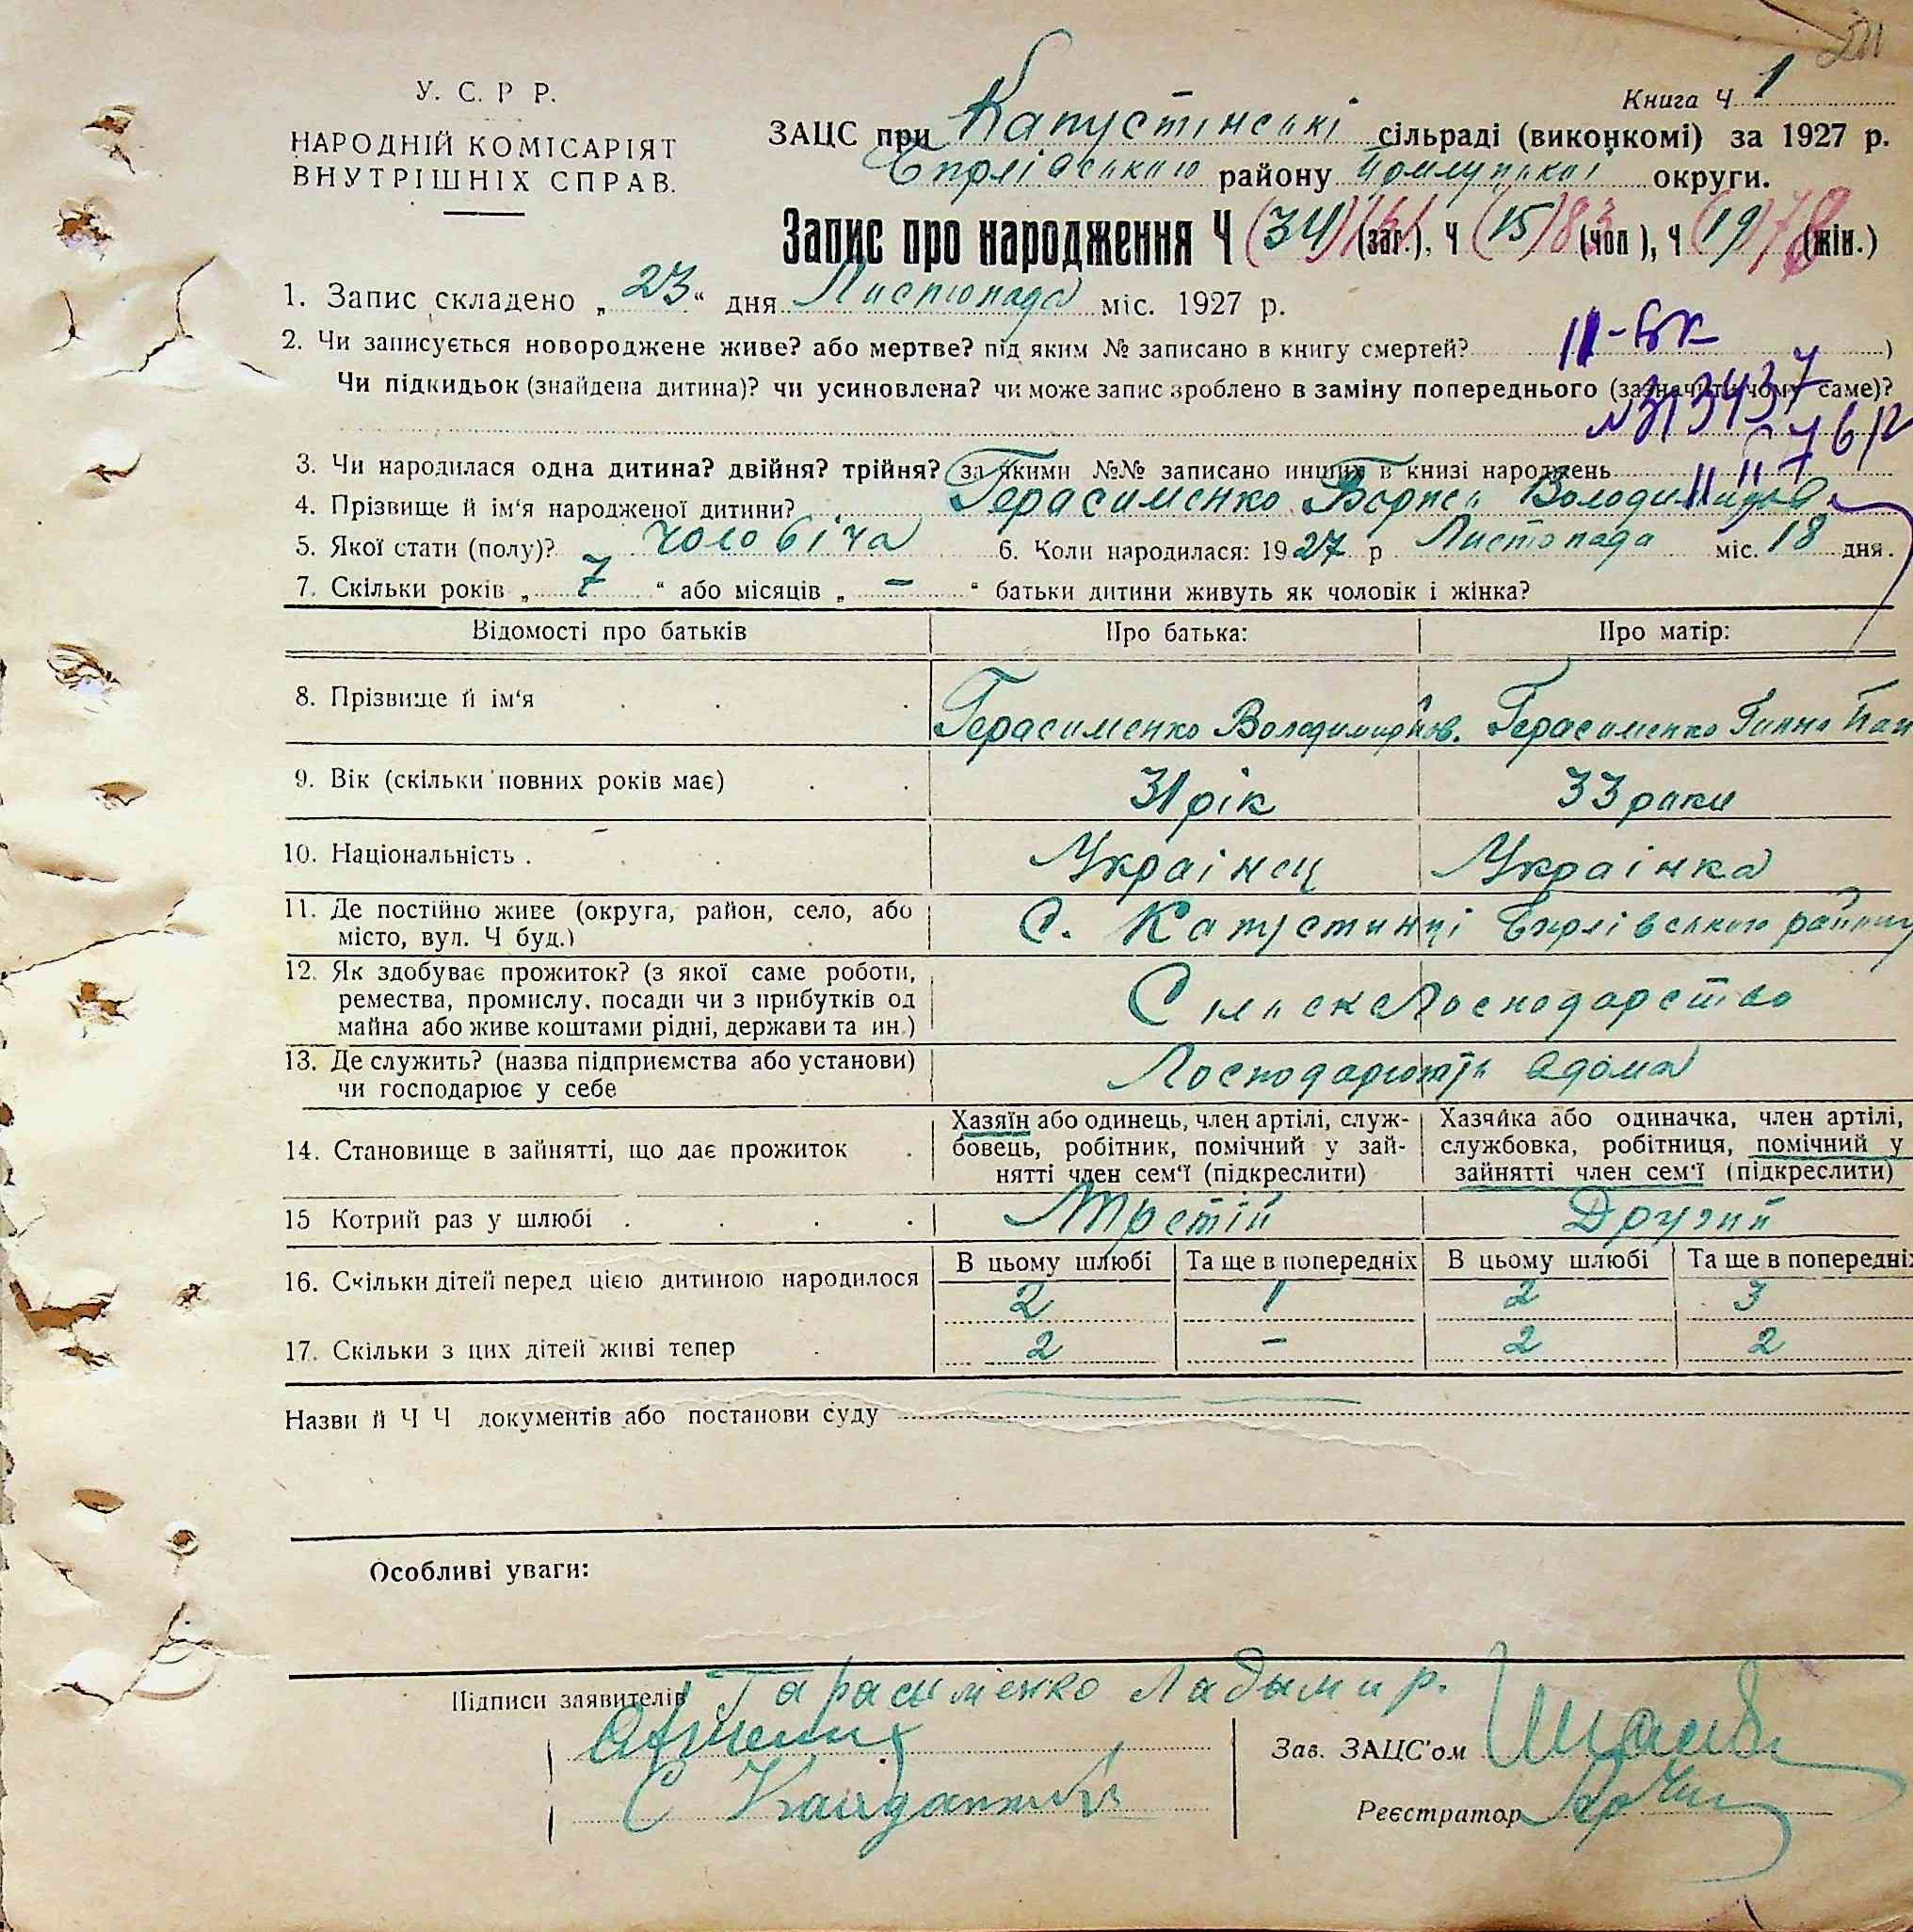 У. С. Р Р.
НАРОДНІЙ КОМІСАРІЯТ
ВНУТРІШНІХ СПРАВ.
Книга Ч. 1
ЗАЦС при Капустінські сільраді (виконкомі) за 1927 р.
району округи.
Запис про народження Ч (34) (заг.), Ч (15) 83 (чол), Ч (19) 78 (жін.)
1. Запис складено „ 23 “ дня Листопада міс. 1927 р.
2. Чи записується новороджене живе? або мертве? під яким № записано в книгу смертей? )
Чи підкидьок (знайдена дитина)? чи усиновлена? чи може запис зроблено в заміну попереднього (зазначити чому саме)?
3. Чи народилася одна дитина? двійня? трійня? за якими №№ записано инших в книзі народжень
4. Прізвище й ім'я народженої дитини? Герасименко Борис
5. Якої стати (полу)? чоловіча 6. Коли народилася: 1927 р Листопада міс. 18 дня.
7. Скільки років „ 7 “ або місяців „ – “ батьки дитини живуть як чоловік і жінка?
Відомості про батьків Про батька: Про матір:
8. Прізвище й ім'я Герасименко Герасименко Ганна Пан
9. Вік (скільки повних років має) 31 рік 33 роки
10. Національність . Українец Українка
11. Де постійно живе (округа, район, село, або
місто, вул. Ч буд.) С. Капустинці району
12. Як здобуває прожиток? (з якої саме роботи,
ремества, промислу, посади чи з прибутків од
майна або живе коштами рідні, держави та ин.)
13. Де служить? (назва підприємства або установи)
чи господарює у себе Господарють вдома
14. Становище в зайнятті, що дає прожиток
Хазяїн або одинець, член артілі, служ-
бовець, робітник, помічний у зай-
нятті член сем'ї (підкреслити)
Хазяйка або одиначка, член артілі,
службовка, робітниця, помічний у
зайнятті член сем'ї (підкреслити)
15 Котрий раз у шлюбі Третій Другий
В цьому шлюбі Та ще в попередніх В цьому шлюбі Та ще в попередніх
16. Скільки дітей перед цією дитиною народилося 2 1 2 3
17. Скільки з цих дітей живі тепер 2 – 2 2
Назви й Ч Ч документів або постанови суду
Особливі уваги:
Підписи заявителів Гарасименко Ладымир.
Зав. ЗАЦС'ом
Реєстратор